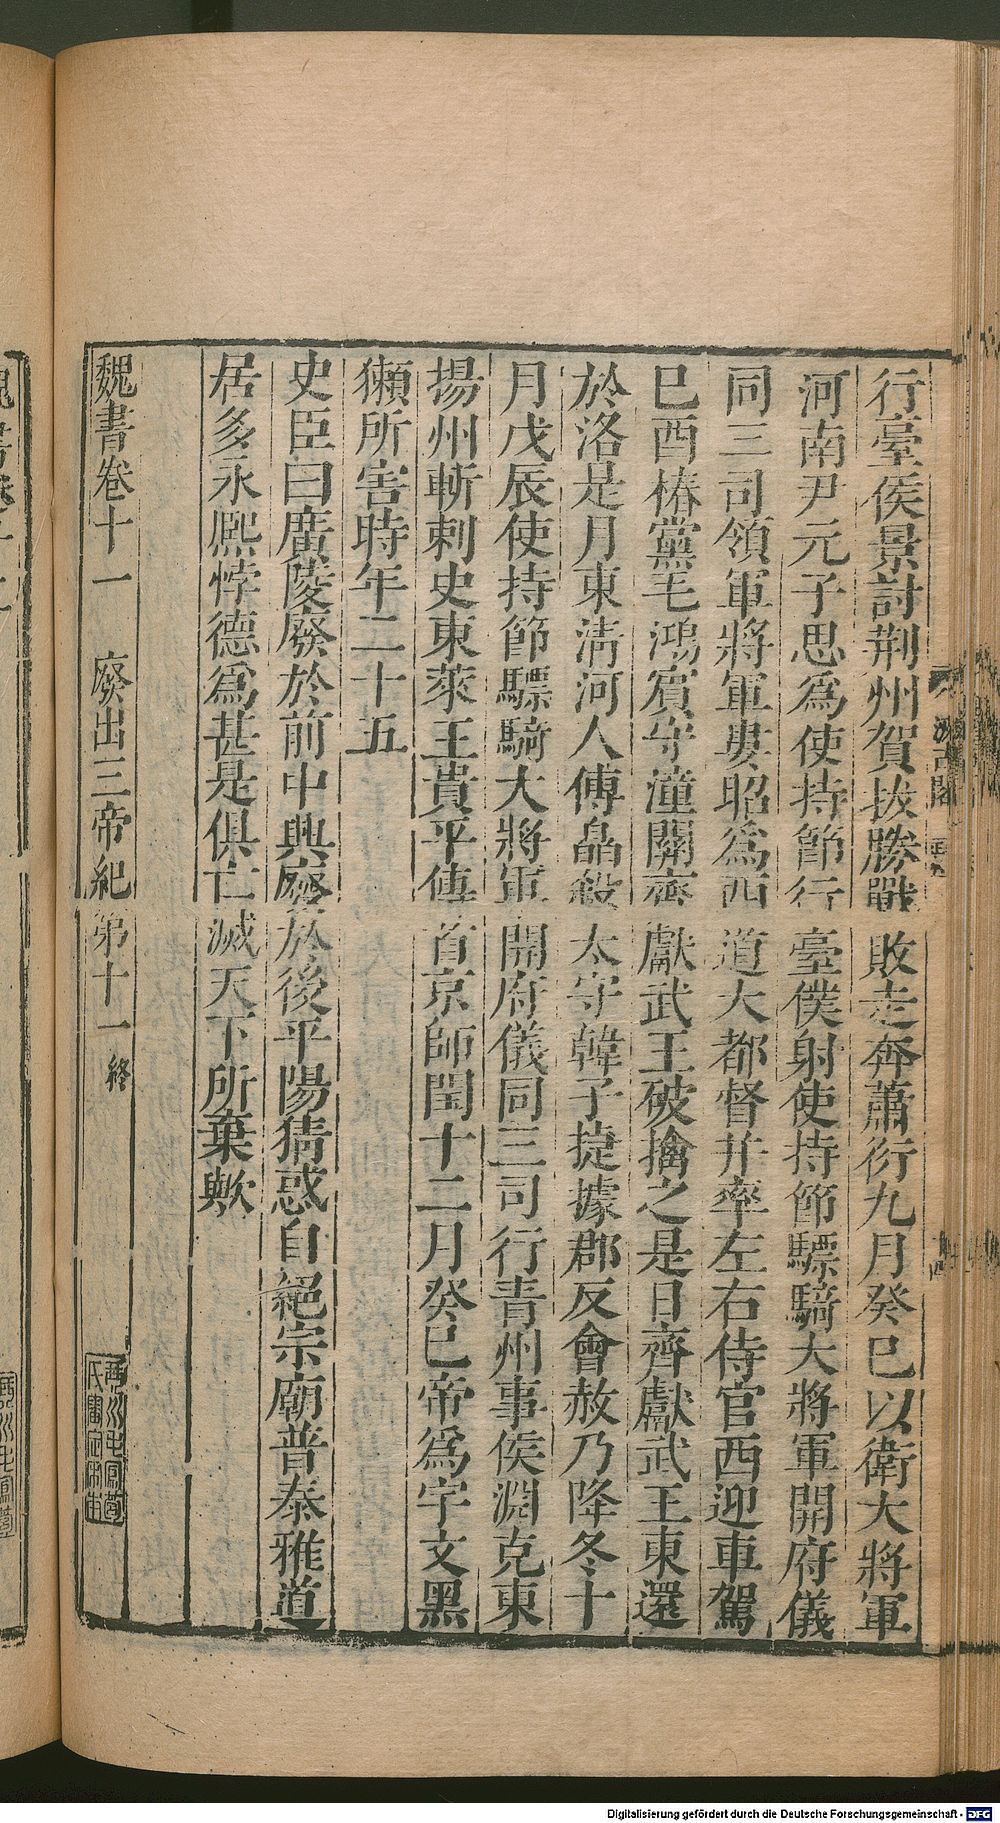 行臺侯景討荆州賀拔勝戰敗走奔蕭衍九月癸巳以衛大將軍
河南尹元子思爲使持節行臺僕射使持節驃騎大將軍開府儀
同三司領軍將軍婁昭爲西道大都督并率左右侍官西迎車駕
巳酉椿黨毛鴻賓守潼關齊獻武王破擒之是日齊獻武王東還
於洛是月東清河人傅皛殺太守韓子捷據郡反會赦乃降冬十
月戊辰使持節驃騎大將軍開府儀同三司行青州事侯淵克東
揚州斬刺史東萊王貴平傳首京師閏十二月癸巳帝爲宇文黑
獺所害時年二十五
史臣曰廣陵廢於前中興廢於後平陽猜惑自絕宗廟普泰雅道
居多永熙悖德爲甚是俱亡滅天下所棄歟
魏書卷十一 廢出三帝紀第十一 終
Digitalisierung gefördert durch die Deutsche Forschungsgemeinschaft - DFG